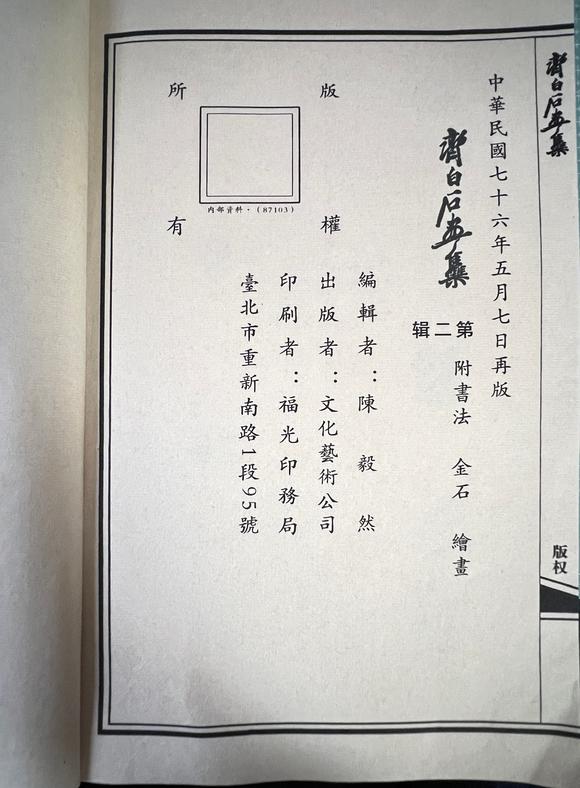 齊白石画集
版权
中華民國七十六年五月七日再版
齊白石画集
第二辑
附書法 金石 繪畫
編輯者：陳毅然
出版者：文化藝術公司
印刷者：福光印務局
臺北市重新南路1段95號
版權
所有
内部資料·(87103)